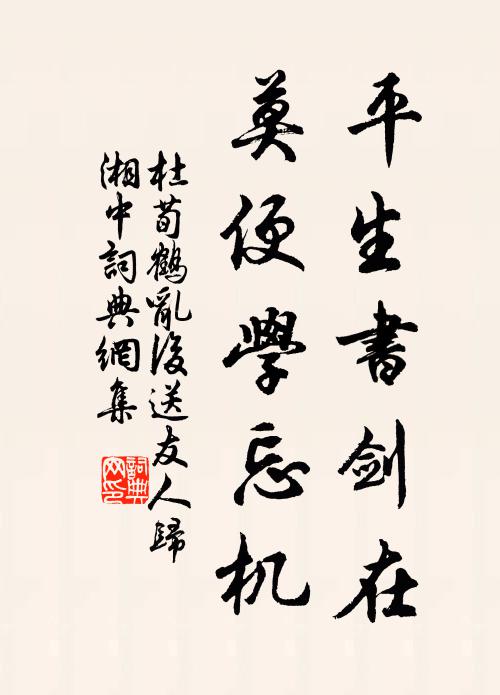 平生書劍在
莫便學忘机
杜荀鶴亂後送友人歸
湘中詞典網集
詞典网印